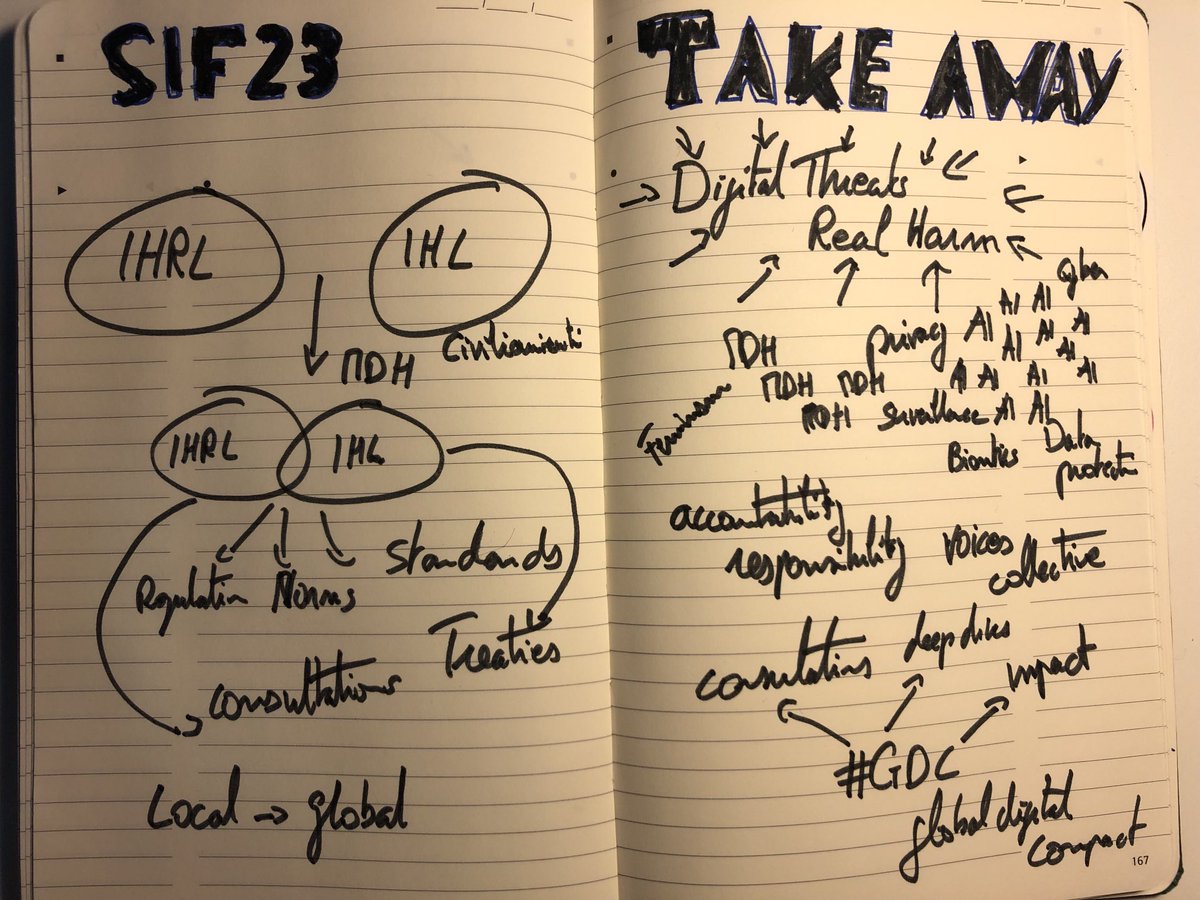 SIF23
IHRL
IHL
MDH
IHRL
IHL
Regulation Norms
Standards
Treaties
Consultations
Local → global
TAKE AWAY
Digital Threats
Real Harm
Cyber
AI AI
privacy AI AI AI
MDH AI AI
MDH MDH AI AI AI AI
Feminism
MDH Surveillance AI AI
Data
protection
accountability
responsibility
voices
collective
consultations
deep dives
impact
#GDC
global digital
compact
167